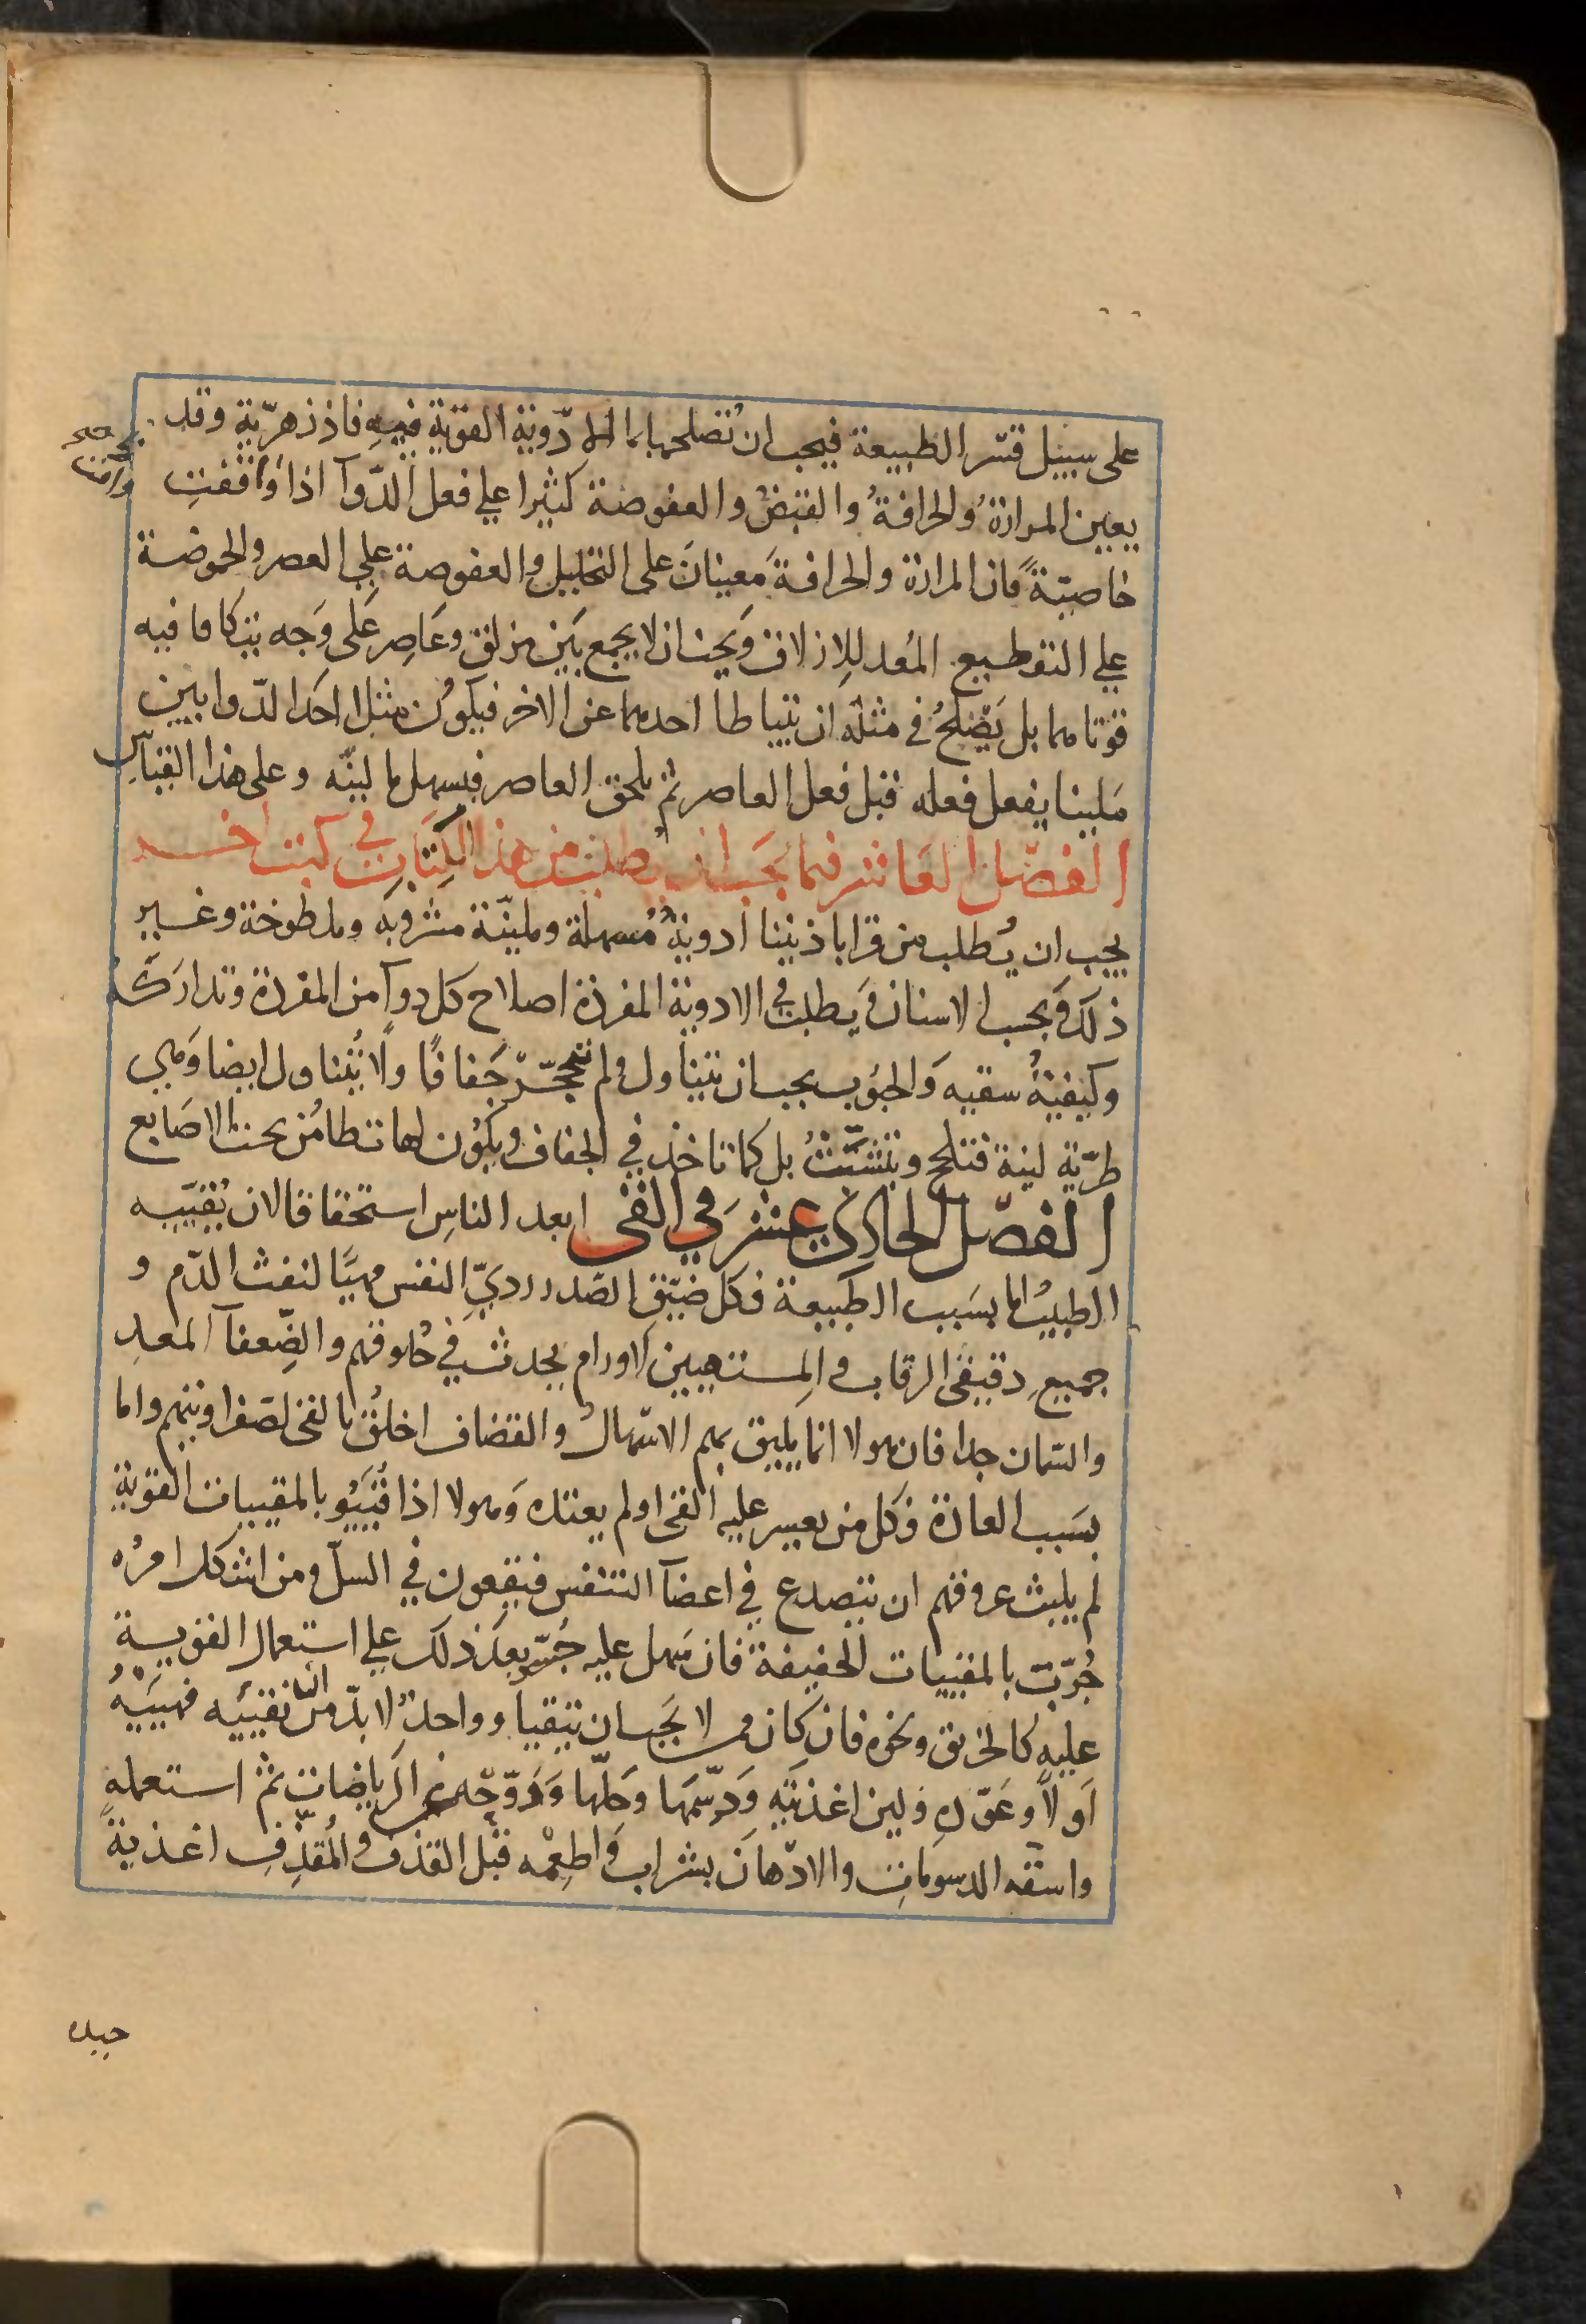 على سبيل قسر الطبيعة فيجب ان تصلحها بما الادوية القوية فيه فاذزهرية وقد
يعين المرارة والحرافة والقبض والعفوصة كثيرا علي فعل الدوآ اذا وافقت
خاصيّة فان المرارة والحرافة معينان على التحليل والعفوصة علي العصر والحموضة
علي التقطيع المُعد للازلاق ويجب ان لا يجمع بين مزلق وعاصر على وجه يتكافا فيه
قوتاهما بل يصلح في مثله ان يتباطا احدهما عن الاخر فيكون مثل احد الدوابين
ملينا يفعل فعله قبل فعل العاصر ثم يلحق العاصر فيسهل ما لينه وعلى هذا القياس
الفصل العاشر فيما يجب ان يطلب من هذا الكتاب في كتب اخر
يجب ان يُطلب من قراباذيننا ادوية مُسهلة وملينّة مشروبه وملطوخة وغير
ذلك وبحسب الاسنان ويطلب في الادوية المفردة اصلاح كل دوآ من المفردة وتداركه
وكيفية سقيه والحبوب يجب ان تتناول ولم تتحجّر جفافًا ولا تُتناول ايضا وهي
طريّة لينة فتلحج وتتشبّث بل كما تاخذ في الجفاف ويكون لها تطامُن تحت الاصابع
الفصل الحادي عشر في القى ابعد الناس استحقاقا لان يُقيّيه
الطبيب اما بسبب الطبيعة فكل ضيّق الصدر رديّ النفس مهيّا لنفث الدّم و
جميع دقيقى الرقاب والمستهيين لاورام يحدث في حلوقهم والضعفآ المعد
والسمان جدا فان هولا انما يليق بهم الاسهال والقضاف اخلق بالقى لصفراويتهم واما
بسبب العادة فكل من يعسر عليه القى او لم يعتده وهولا اذا قُيّيو بالمقييات القوية
لم يلبث عروقهم ان تتصدع في اعضآ التنفس فيقعون في السل ومن اشكل امرُه
جُرّب بالمقييات الخفيفة فان سهل عليه جُسّر بعد ذلك علي استعمال القوية
عليه كالخربق ونحوه فان كان ممن لا يجب ان يتقيا وواحد لا بدّ من ان تقييه فهييّه
اولاً وعوّده ولين اغذيته ودسّمها وحلّها وروّحه عن الرياضات ثم استعمله
واسقه الدسومات والادهان بشراب واطعمه قبل القذف والمقذف اغذية
جيده